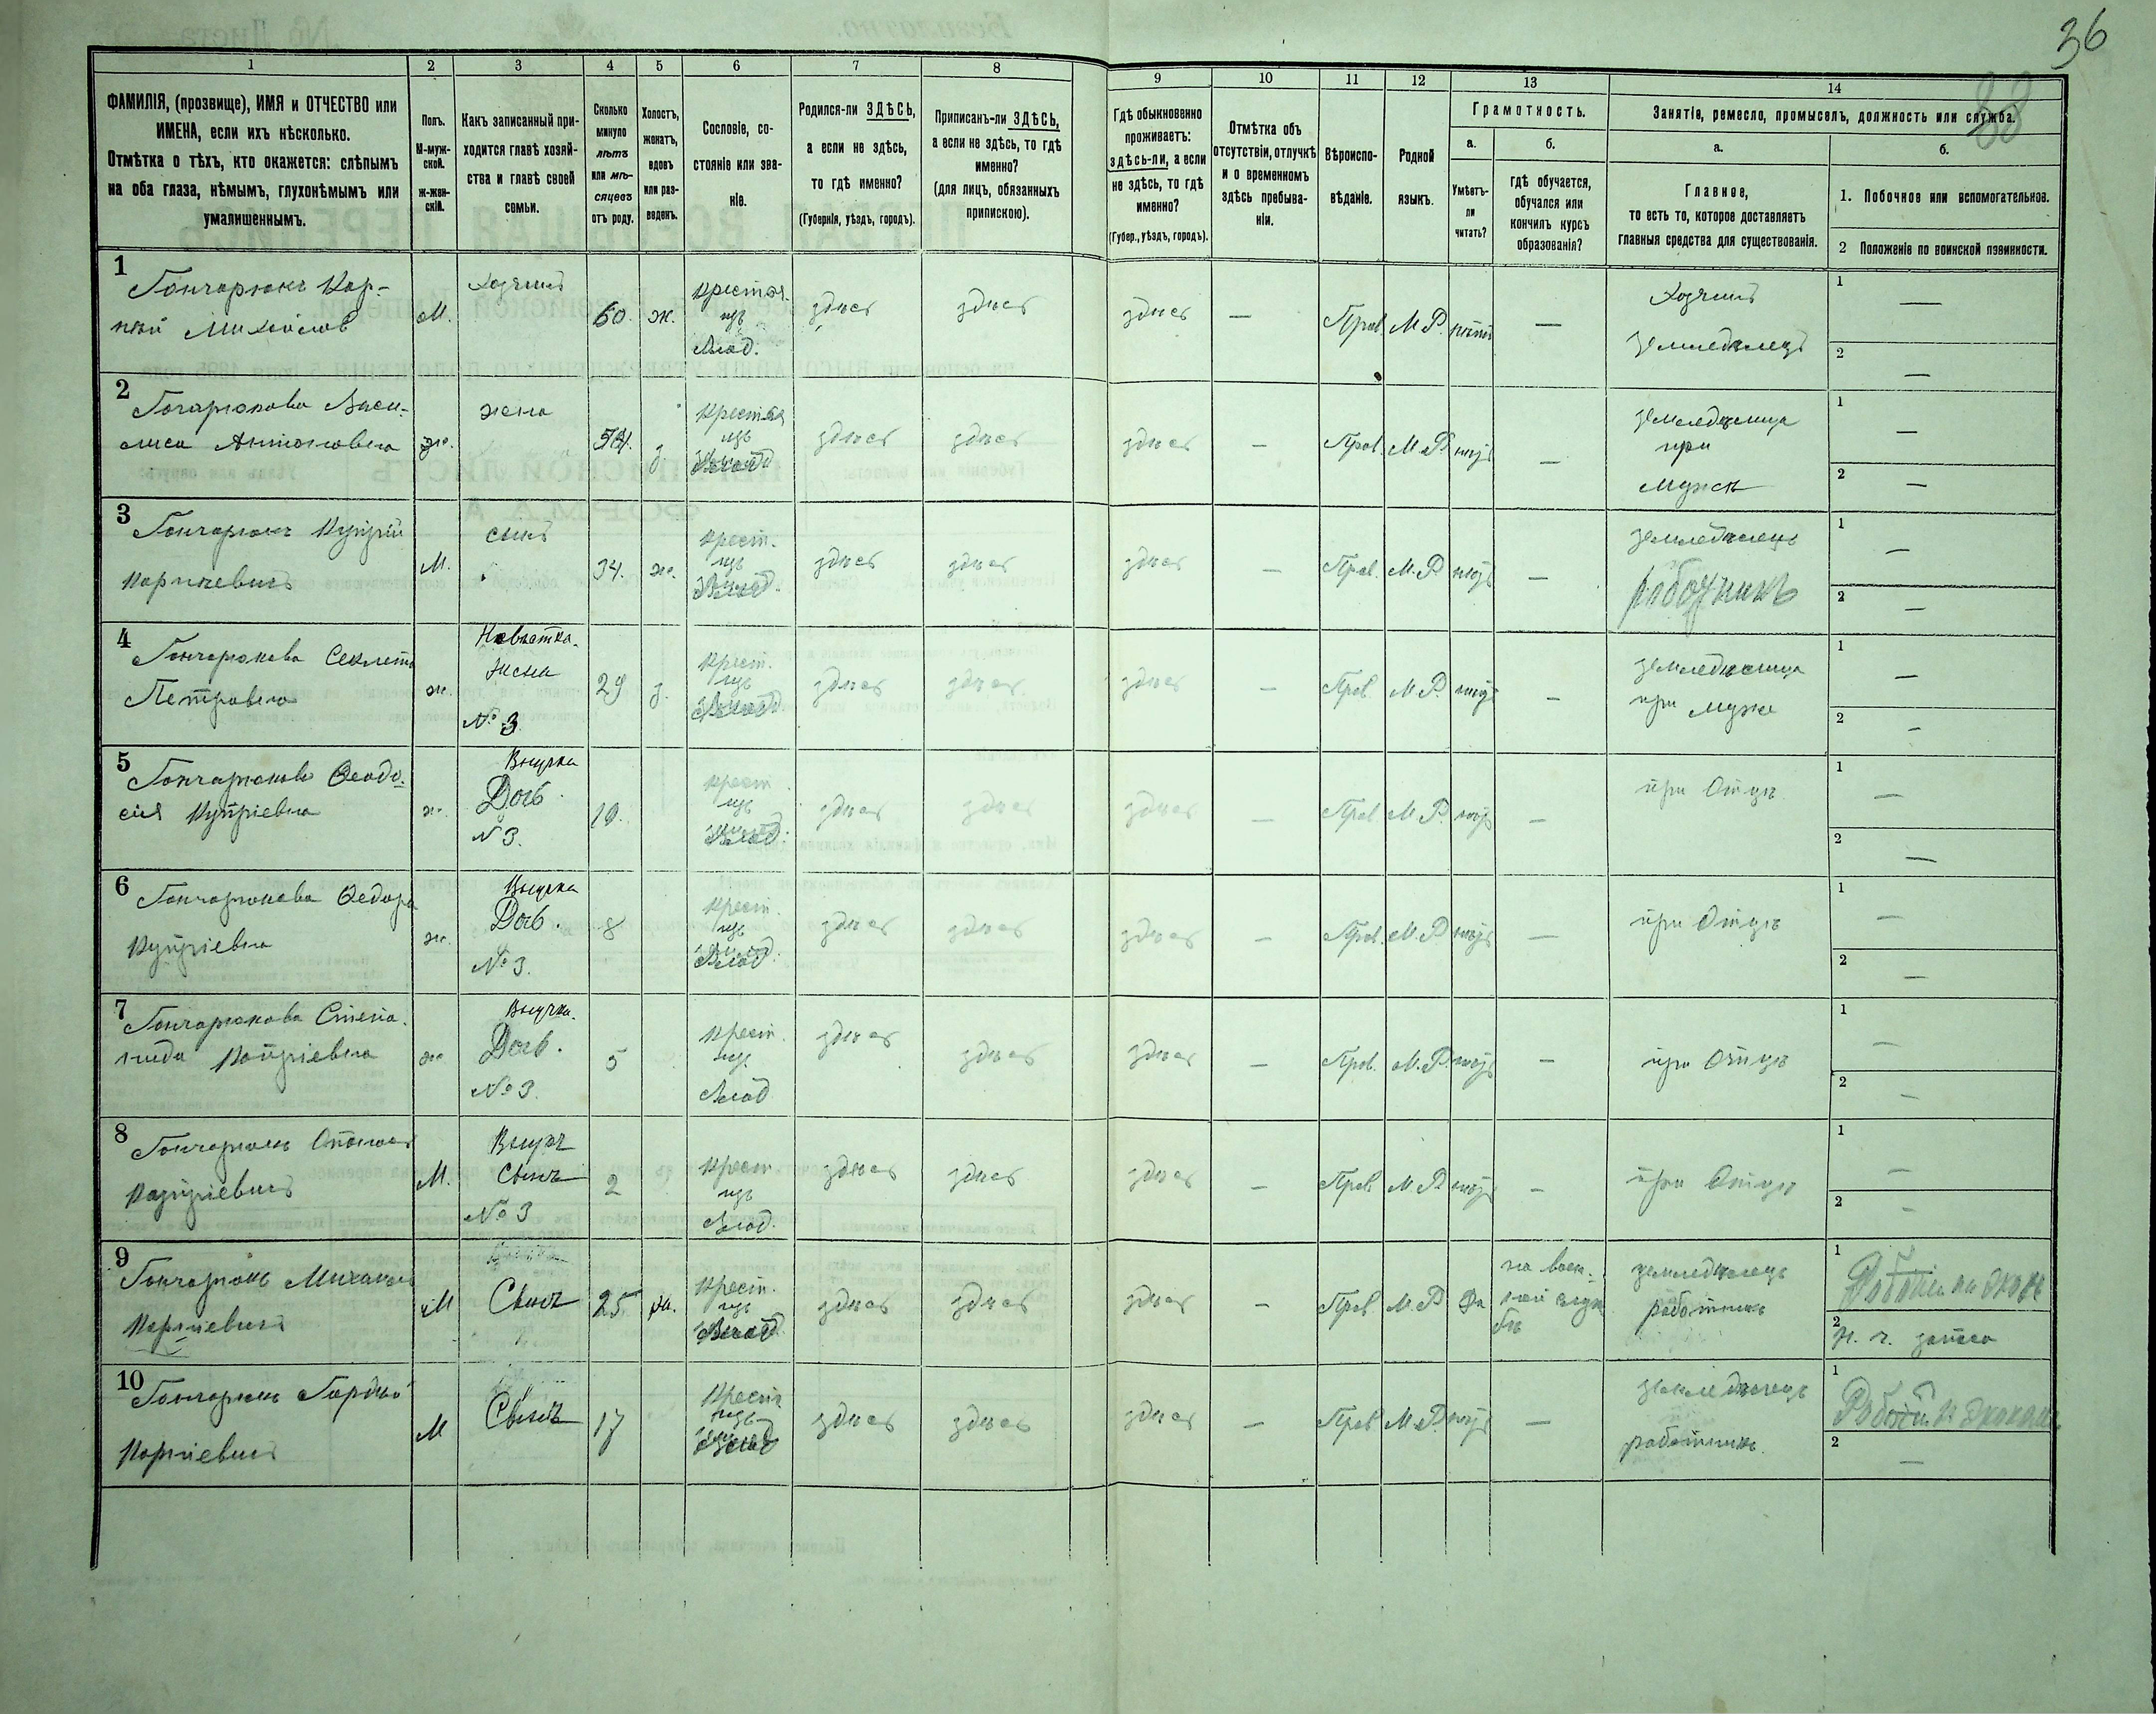 36
38
1
2
3
4
5
6
7
8
9
10
11
12
13
14
ФАМИЛІЯ, (прозвище), ИМЯ и ОТЧЕСТВО или
ИМЕНА, если ихъ нѣсколько.
Отмѣтка о тѣхъ, кто окажется: слѣпымъ
на оба глаза, нѣмымъ, глухонѣмымъ или
умалишеннымъ.
Полъ.
М-муж-
ской.
Ж-жен-
скій.
Какъ записанный при-
ходится главѣ хозяй-
ства и главѣ своей
семьи.
Сколько
минуло
лѣтъ
или мѣ-
сяцевъ
отъ роду.
Холостъ,
женатъ,
вдовъ
или раз-
веденъ.
Сословіе, со-
стояніе или зва-
ніе.
Родился-ли ЗДѢСЬ,
а если не здѣсь,
то гдѣ именно?
(Губернія, уѣздъ, городъ).
Приписанъ-ли ЗДѢСЬ,
а если не здѣсь, то гдѣ
именно?
(для лицъ, обязанныхъ
припискою).
Гдѣ обыкновенно
проживаетъ:
здѣсь-ли, а если
не здѣсь, то гдѣ
именно?
(Губер., уѣздъ, городъ).
Отмѣтка объ
отсутствіи, отлучкѣ
и о временномъ
здѣсь пребыва-
ніи.
Вѣроиспо-
вѣданіе.
Родной
языкъ.
Грамотность.
а.
Умѣетъ-
ли
читать?
б.
гдѣ обучается,
обучался или
кончилъ курсъ
образованія?
Занятіе, ремесло, промыселъ, должность или служба.
а.
Главное,
то есть то, которое доставляетъ
главныя средства для существованія.
б.
1. Побочное или вспомогательное.
2 Положеніе по воинской повинности.
1
Гончарюкъ Кор-
ній Михайловъ
М.
Хозяинъ
60.
ж.
Крестья.
изъ
Влад.
здѣсь
здѣсь
здѣсь
—
Прав.
М.Р.
нѣтъ
—
Хозяинъ
Земледѣлецъ
1
—
2
—
2
Гочарюкова Васи-
лиса Антоновна
ж.
жена
54.
з.
Крестья
изъ
Влад
здѣсь
здѣсь
здѣсь
—
Прав.
М.Р
нѣтъ
—
земледѣлица
при
мужѣ
1
—
2
—
3
Гончарюкъ Купрій
Корніевичъ
М.
сынъ
34.
ж.
Крест.
изъ
Влад.
здѣсь
здѣсь
здѣсь
—
Прав.
М.Р
нѣтъ
—
земледѣлецъ
работникъ
1
—
2
—
4
Гончарюкова Секлета
Петровна
ж.
Невѣстка.
жена
№ 3
29
з.
Крест.
изъ
Влад.
здѣсь
здѣсь
здѣсь
—
Прав
М.Р.
нѣтъ
—
земледѣлица
при мужѣ
1
—
2
—
5
Гончарюкова Ѳеодо-
сія Купріевна
ж.
Внучка
Дочь
№ 3.
10.
Крест
изъ
Влад.
здѣсь
здѣсь
здѣсь
—
Прав
М.Р.
нѣтъ
—
при Отцѣ
1
—
2
—
6
Гончарюкова Ѳедора
Купріевна
ж.
Внучка
Дочь.
№ 3.
8
Крест.
изъ
Влад.
здѣсь
здѣсь
здѣсь
—
Прав.
М.Р
нѣтъ
—
при Отцѣ
1
—
2
—
7
Гончарюкова Степа-
нида Купріевна
ж
Внучка.
Дочь.
№ 3.
5
Крест.
изъ
Влад
здѣсь
здѣсь
здѣсь
—
Прав.
М.Р.
нѣтъ
—
при Отцѣ
1
—
2
—
8
Гончарюкъ
Купріевичъ
М.
Внукъ
Сынъ
№ 3
2
Крест
изъ
Влад.
здѣсь
здѣсь
здѣсь
—
Прав
М.Р.
нѣтъ
—
при Отцѣ
1
—
2
—
9
Гончарюкъ Михаилъ
Корніевичъ
М
Сынъ
25
Крест.
изъ
Влад
здѣсь
здѣсь
здѣсь
—
Прав
М.Р
Да
на воен-
ной служ
бѣ
земледѣлецъ
работникъ
1
2
запаса
10
Гончарюкъ Гордій
Корніевичъ
М
Сынъ
17
Крест
изъ
Влад
здѣсь
здѣсь
здѣсь
—
Прав
М.Р.
нѣтъ
—
земледѣлецъ
работникъ.
1
2
—